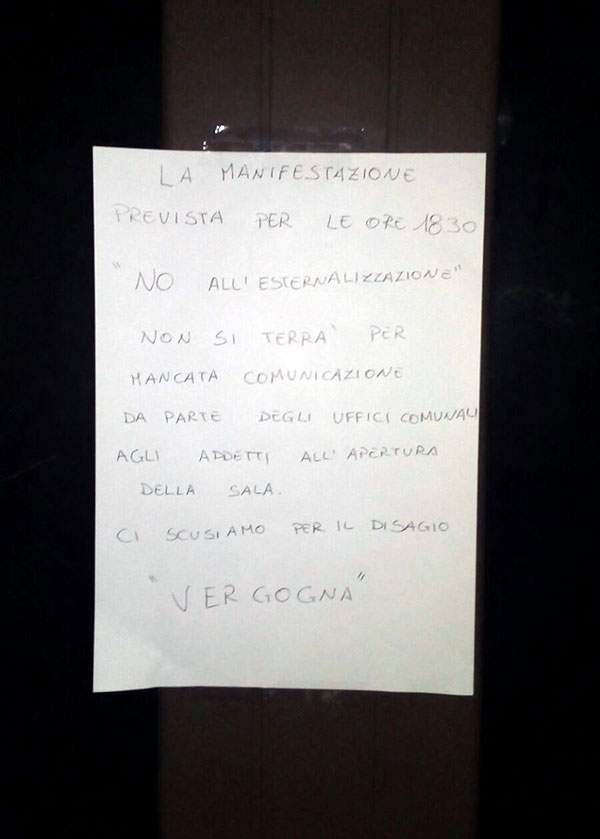 LA MANIFESTAZIONE
PREVISTA PER LE ORE 18.30
"NO ALL'ESTERNALIZZAZIONE"
NON SI TERRA' PER
MANCATA COMUNICAZIONE
DA PARTE DEGLI UFFICI COMUNALI
AGLI ADDETTI ALL'APERTURA
DELLA SALA.
CI SCUSIAMO PER IL DISAGIO
"VERGOGNA"